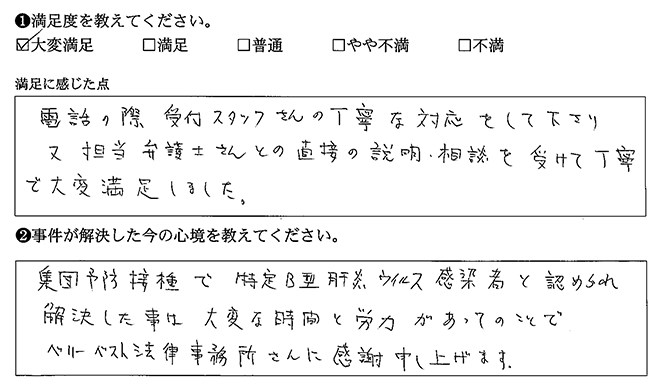 ❶満足度を教えてください。
☑大変満足 □満足 □普通 □やや不満 □不満
満足に感じた点
電話の際 受付スタッフさんの丁寧な対応をして下さり
又 担当弁護士さんとの直接の説明・相談を受けて丁寧
で大変満足しました。
❷事件が解決した今の心境を教えてください。
集団予防接種で 特定B型肝炎ウイルス感染者と認められ
解決した事は 大変な時間と労力があってのことで
ベリーベスト法律事務所さんに感謝申し上げます。